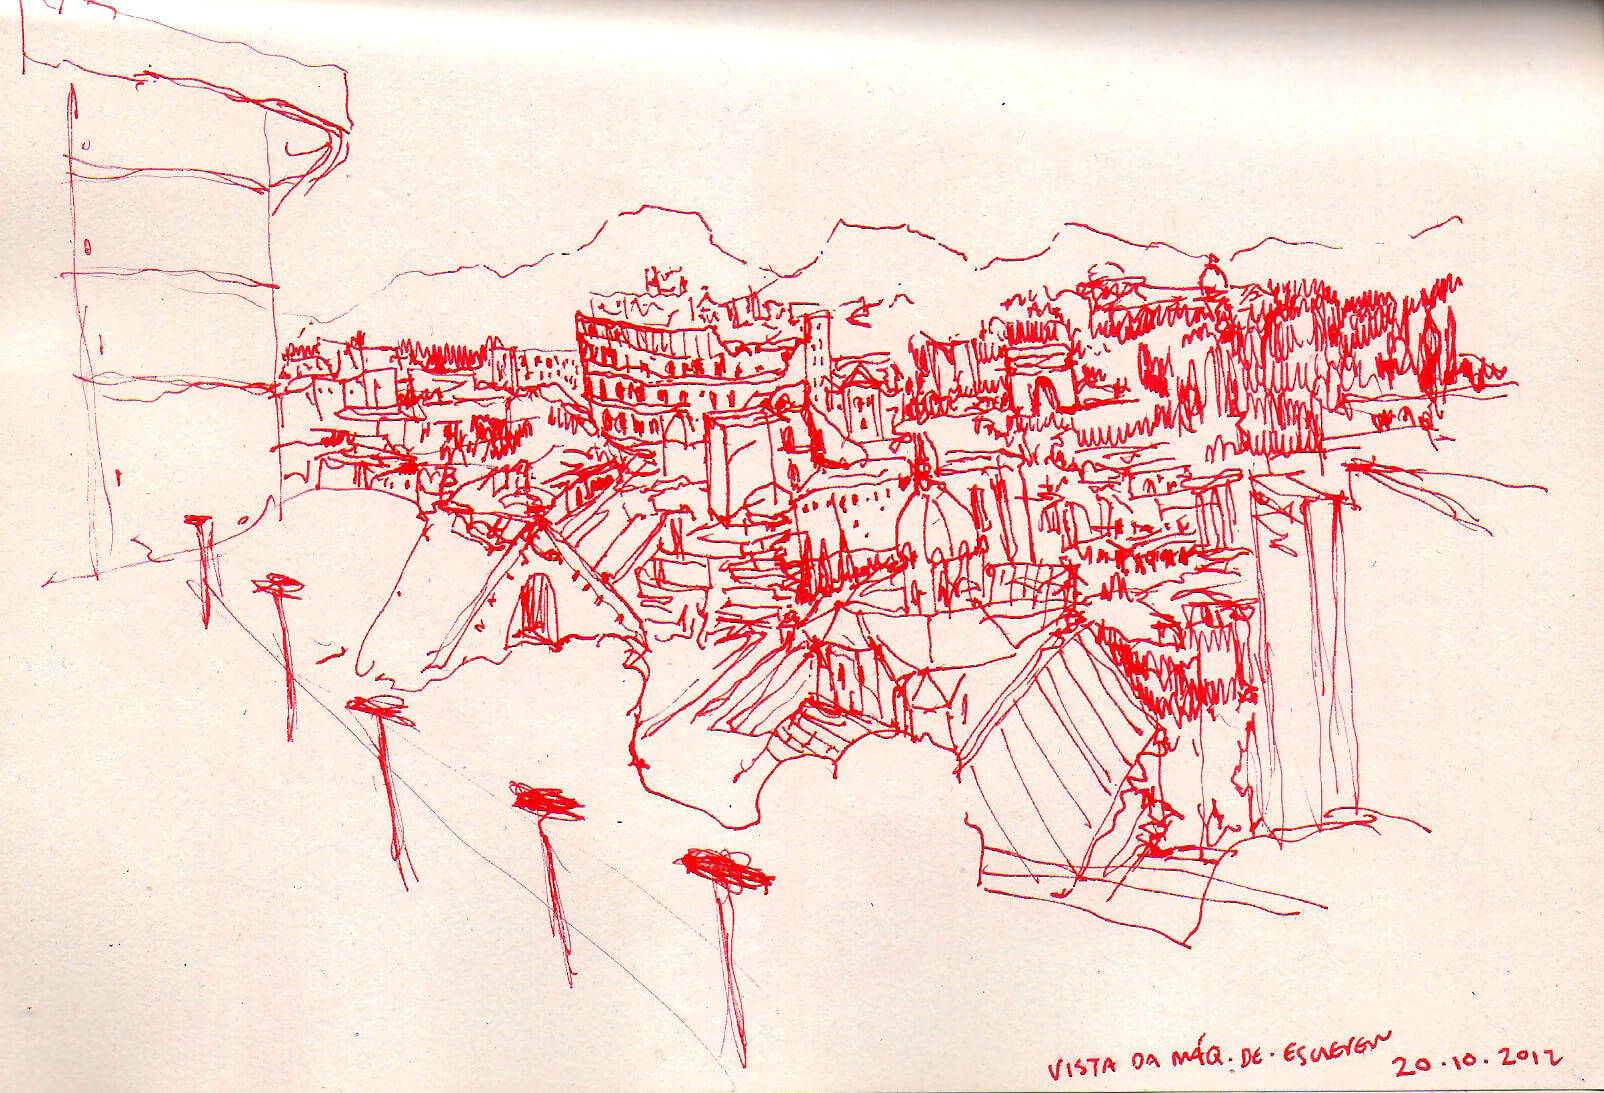 VISTA DA MÁQ. DE. ESCREVER
20.10.2012